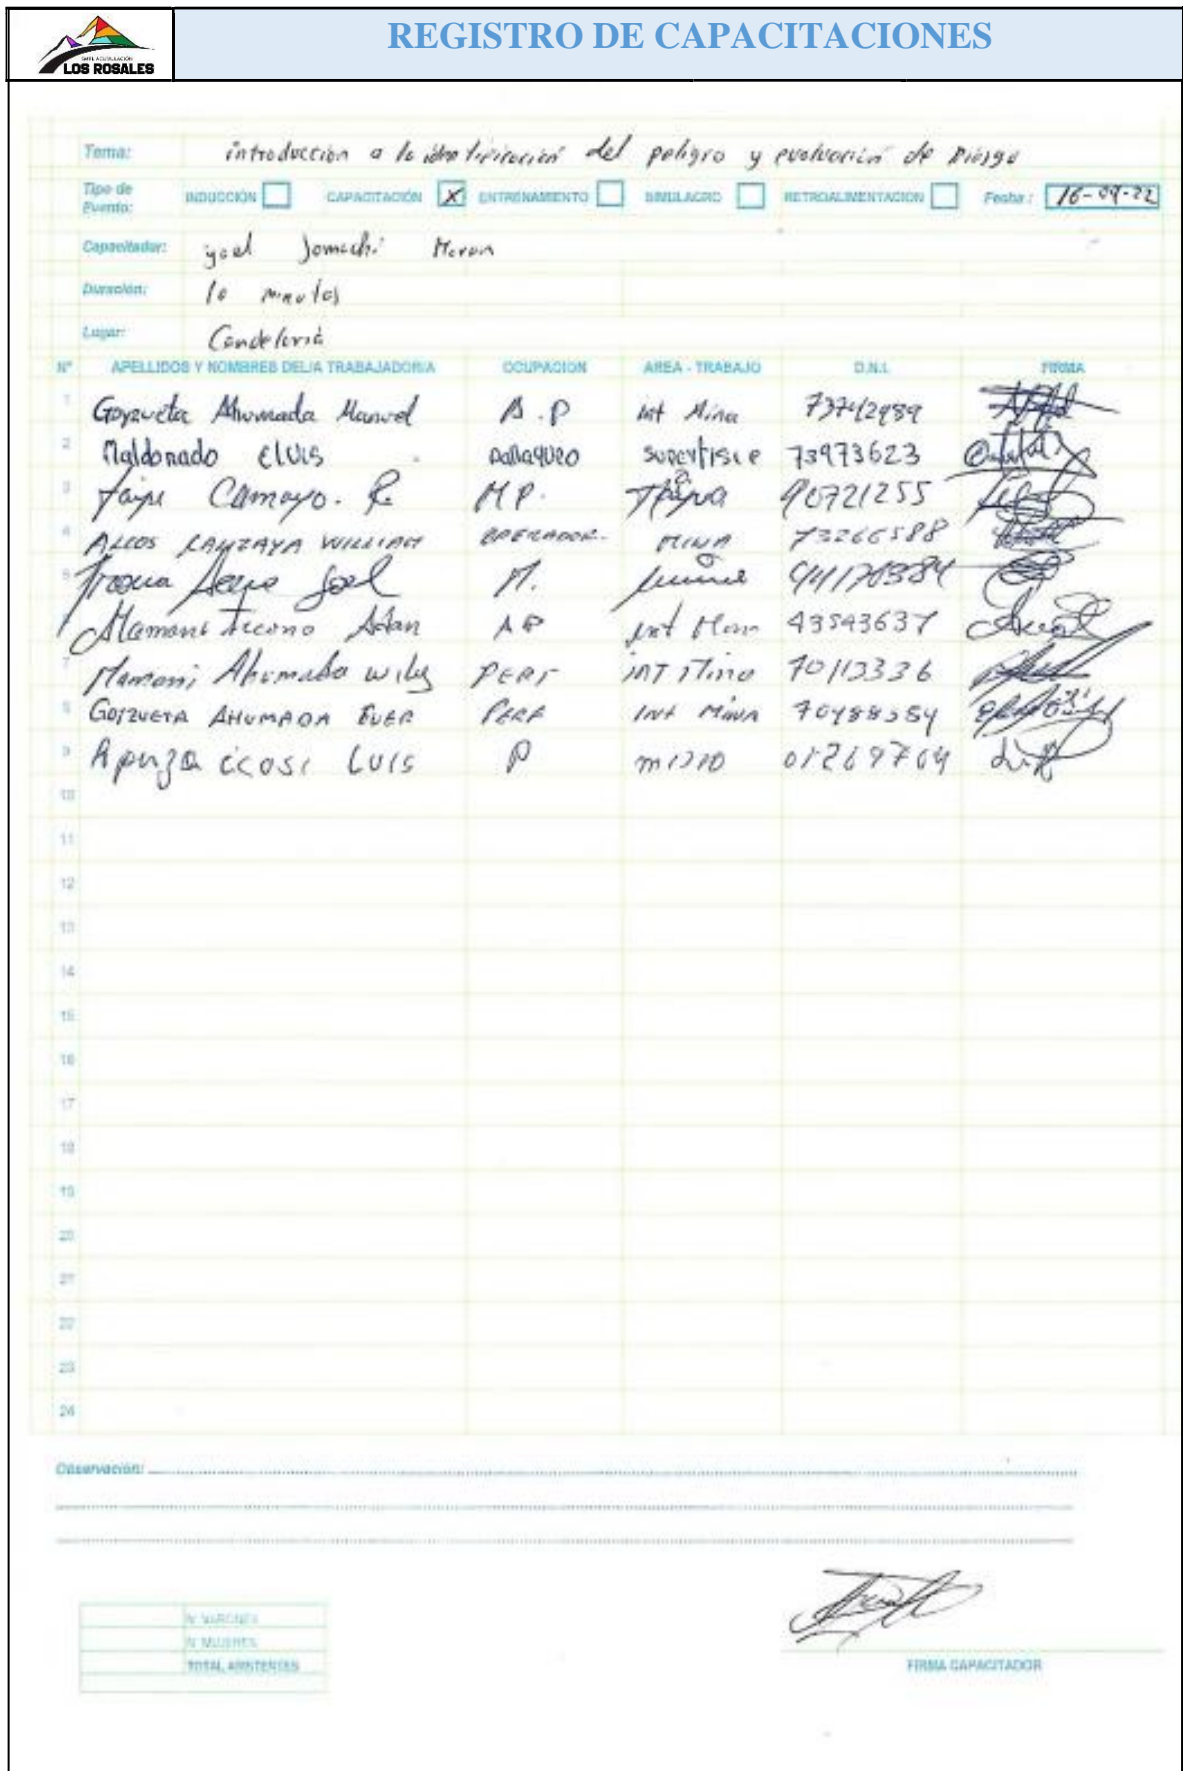 LOS ROSALES
REGISTRO DE CAPACITACIONES
Tema: introducción a la identificación del peligro y evaluación de riesgo
Tipo de Evento: INDUCCIÓN CAPACITACIÓN X ENTRENAMIENTO SIMULACRO RETROALIMENTACION Fecha: 16-09-22
Capacitador: yoel
Duración: 10 minutos
Lugar: Candelaria
N° APELLIDOS Y NOMBRES DEL/A TRABAJADOR/A OCUPACION AREA - TRABAJO D.N.I. FIRMA
1 Goyzueta Ahumada Manuel A.P Int Mina
2 Maldonado ELVIS 73973623
3 Taipe Camayo. R M.P. 40721255
4 WILLIAM OPERADOR. MINA 73266588
5 Joel M.
6 Mamani Ticona Adan A P int 43543637
7 Mamani Ahumada Wily PERF INT Mina
8 GOYZUETA AHUMADA EVER PERF Int Mina
9 Apaza ccosi LUIS P 01269764
10
11
12
13
14
15
16
17
18
19
20
21
22
23
24
Observación:
N° VARONES
N° MUJERES
TOTAL ASISTENTES
FIRMA CAPACITADOR